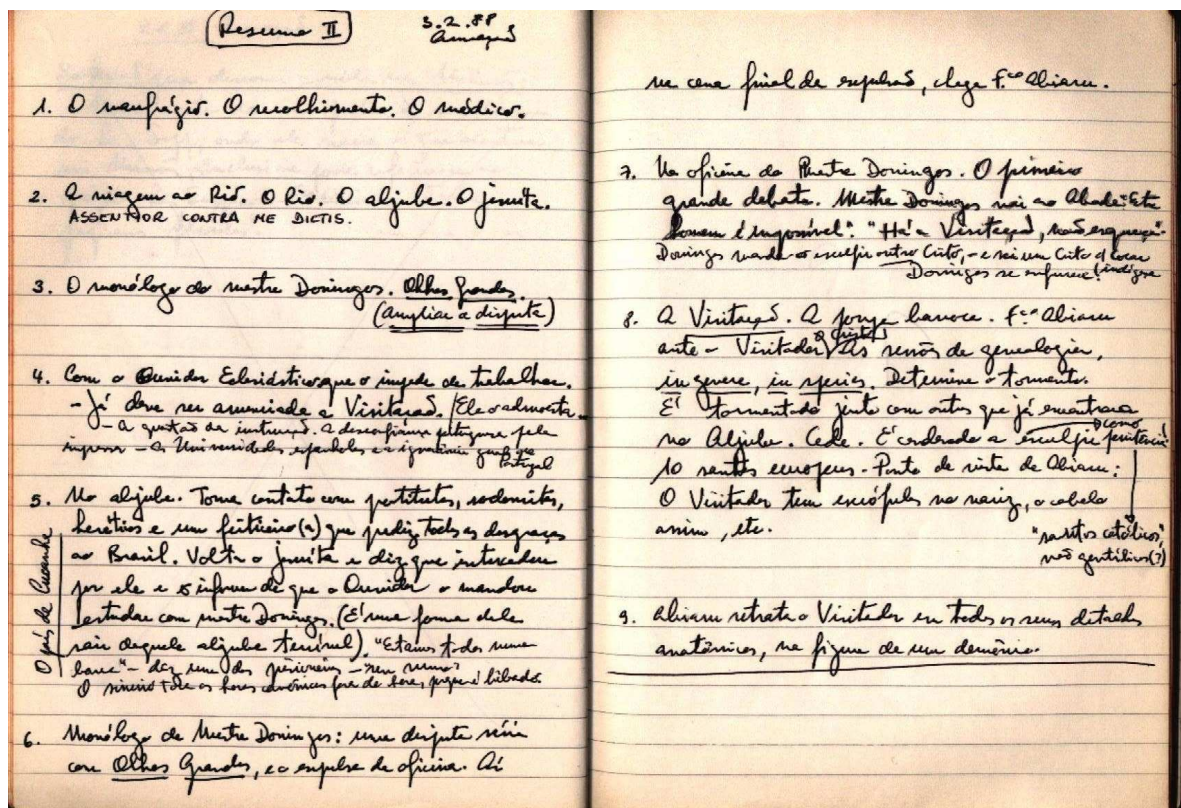 Resumo II
3.2.88
Armação
1. O naufrágio. O recolhimento. O médico.
2. A viagem ao Rio. O Rio. O aljube. O jesuíta.
ASSENTIOR CONTRA ME DICTIS.
3. O monólogo do mestre Domingos. Olhos Grandes.
(Ampliar a disputa)
4. Com o Ouvidor Eclesiástico, que o impede de trabalhar.
- Já deve ser anunciada a Visitação. Ele o admoesta -
- a questão da instrução. A desconfiança portuguesa pela
imprensa - as Universidades espanholas e a ignorância
Portugal
5. No aljube. Toma contato com prostitutas, sodomitas,
heréticos e um feiticeiro(a) que prediz todas as desgraças
ao Brasil. Volta o jesuíta e diz que intercedeu
por ele e o informa de que o Ouvidor o mandou
estudar com mestre Domingos. (É uma forma dele
sair daquele aljube terrível). "Estamos todos numa
barca" - diz um dos prisioneiros - sem rumo
O sineiro toca as horas canônicas fora de hora, porque é bêbado.
O país de Cucanha
6. Monólogo de Mestre Domingos: uma disputa séria
com Olhos Grandes, e o expulsa da oficina. Aí
na cena final de expulsão, chega F.co Abiaru.
7. Na oficina do Mestre Domingos. O primeiro
grande debate. Mestre Domingos vai ao Abade: "Este
homem é impossível". "Há a Visitação, não esqueça".
Domingos manda-o esculpir outro Cristo, - e sai um Cristo
Domingos se enfurece! indígena
8. A Visitação. A pompa barroca. F.co Abiaru
ante o Visitador. As sessões de genealogia,
in genere, in species. Determina o tormento.
É tormentado junto com outros que já encontrara
no Aljube. Cede. É condenado a esculpir como penitência
10 santos europeus. - Ponto de vista de Abiaru:
O Visitador tem escrófulas no nariz, o cabelo
assim, etc.
"santos católicos,
não gentílicos(?)
9. Abiaru retrata o Visitador em todos os seus detalhes
anatômicos, na figura de um demônio.